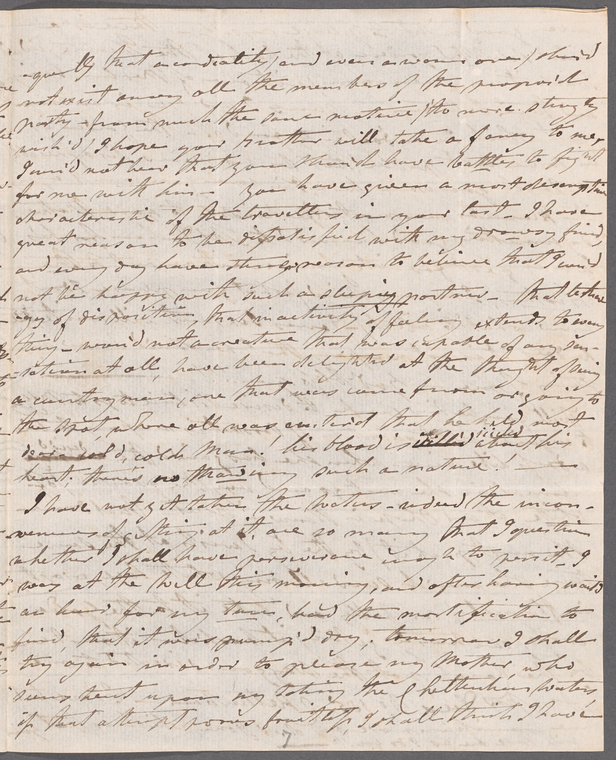 -quently that a cordiality (and even a warm one) should
not exist among all the members of the proposed
party - from much the same motive (tho' more strongly
wish'd) I hope your brother will take a fancy to me,
I wou'd not hear that you should have battles to fight
for me with him - you have given a most descriptive
characteristic of the travellers in your last - I have
great reason to be dissatisfied with my drowsy friend,
and every day have stronger reason to believe that I cou'd
not be happy with such a sleeping partner - that lethar
-gy of disposition, that inactivity of feeling extends to every
thing - wou'd not a creature that was capable of any sen-
-sation at all, have been delighted at the thought of seeing
a countryman, one that was come from or going to
the spot, where all was center'd that he held most
dear cold, cold Man! his blood is about his
heart. there's no thawing such a nature. —
I have not yet taken the Waters - indeed the incon-
veniences of getting at it, are so many that I question
whether I shall have perseverance enough to persist - I
was at the Well this morning, and after having waited
an hour for my turn, had the mortification to
find, that it was pump'd dry, tomorrow I shall
try again in order to please my Mother, who
seems bent upon my taking the Cheltenham Waters
if that attempt proves fruitless, I shall think I have
7